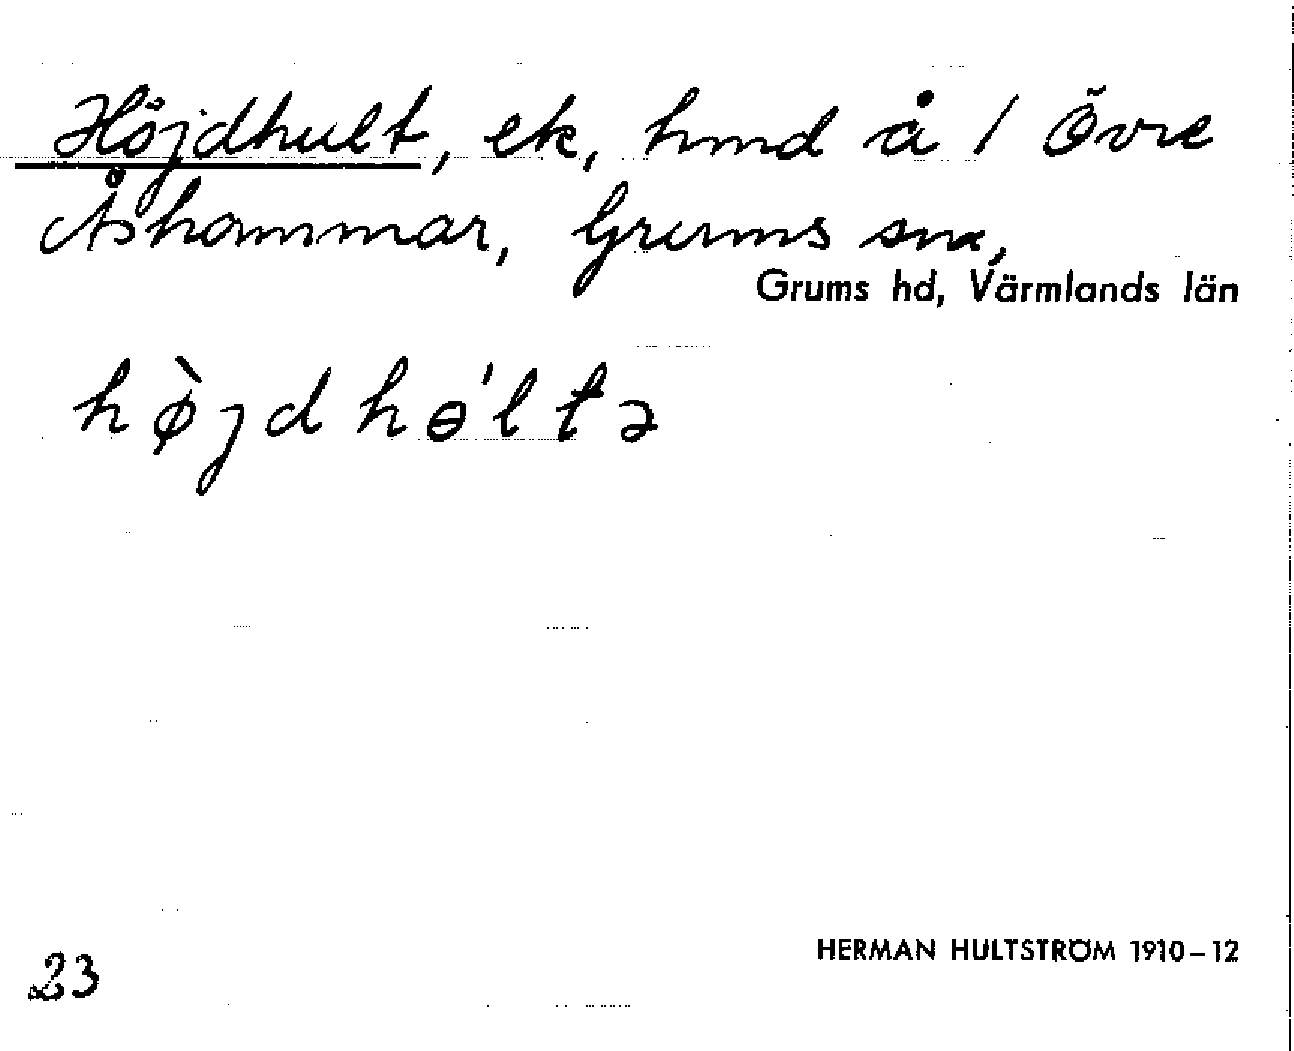 Höjdhult, ek, hmd å 1 Övre
Åshammar, Grums sn,
Grums hd, Värmlands län
hø̀jdhɵ́ltə
23
HERMAN HULTSTRÖM 1910–12